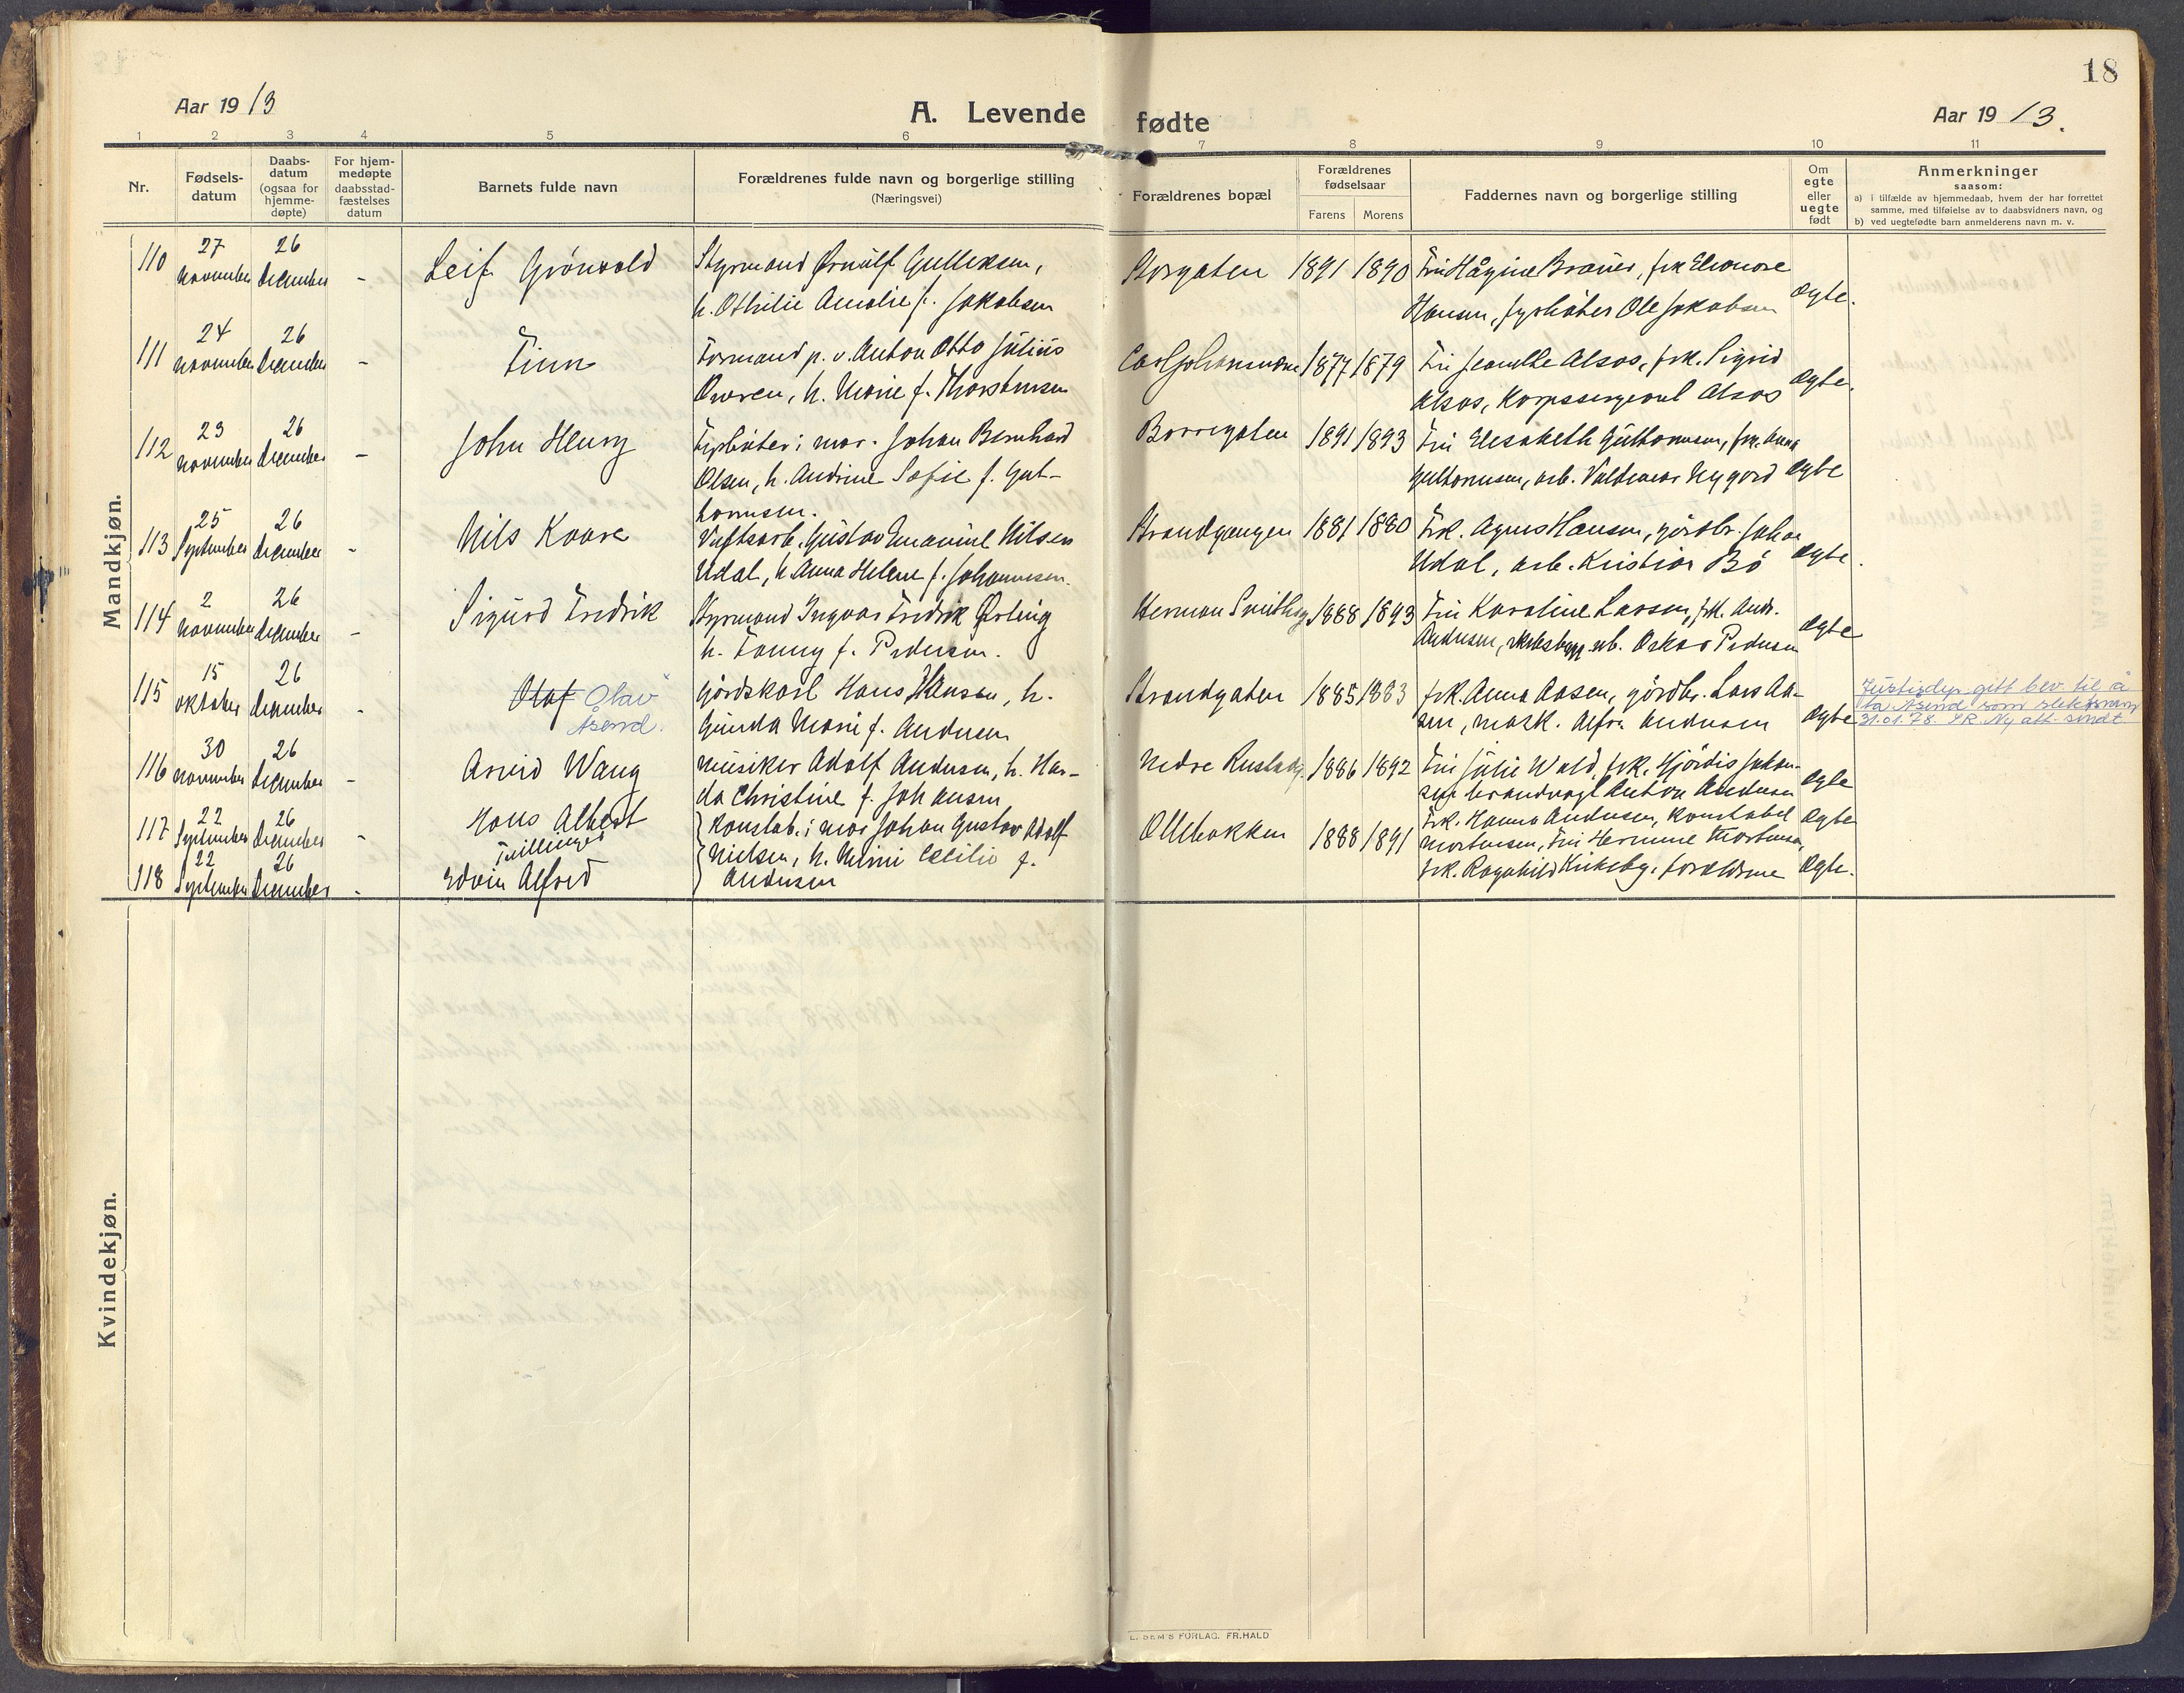 18
Aar 1913
A. Levende fødte
Aar 1913.
1 2 3 4 5 6 7 8 9 10 11
Nr.
Fødsels-
datum
Daabs-
datum
(ogsaa for
hjemme-
døpte)
For hjem-
medøpte
daabsstad-
fæstelses
datum
Barnets fulde navn
Forældrenes fulde navn og borgerlige stilling
(Næringsvei)
Forældrenes bopæl
Forældrenes
fødselsaar
Farens Morens
Faddernes navn og borgerlige stilling
Om
egte
eller
uegte
født
Anmerkninger
saasom:
a) i tilfælde av hjemmedaab, hvem der har forrettet
samme, med tilføielse av to daabsvidners navn, og
b) ved uegtefødte barn anmelderens navn m. v.
Mandkjøn.
110 27 november 26 december - Leif Grönvold
Styrmand Ørnulf Gulliksen,
h. Othilie Amalie f. Jakobsen
Storgaten 1891 1890 Fru Hågine Brauer, frk Eleonore
Hansen, fyrböter Ole Jakobsen
ægte.
111 24 november 26 december - Finn
Formand p. v. Anton Otto Julius
h. Marie f. Thorstensen
1877 1879 Fru Jeanette Alsos, frk. Sigrid
Alsos, Korpssergeant Alsos
ægte.
112 23 november 26 december - John Henry
Fyrböter i mar. Johan Bernhard
Olsen, h. Andrine Sofie f. Gut-
tormsen.
Borregaten 1891 1893 Fru Elisabeth Guttormsen, frk. Anna
Guttormsen, arb. Valdemar Nygård
ægte
113 25 September 26 december - Nils Kaare
Verftsarb. Gustav Emanuel Nilsen
Udal, h. Anna Helene f. Johannesen.
Strandgangen 1881 1880 Frk. Agnes Hansen, gårdbr. Johan
Udal, arb. Kristian Bö
ægte.
114 2 november 26 december - Sigurd Fredrik
Styrmand Ingvar Fredrik Ørling
h. Fanny f. Pedersen.
Herman Smithsg 1888 1893 Fru Karoline Larsen, frk. Andr.
Andersen, arb. Oskar Pedersen
ægte
115 15 oktober 26 december - Olaf Olav
Åsend.
Gårdskarl Hans Hansen, h.
Gunda Marie f. Andersen
Strandgaten 1885 1883 frk. Anna Aasen, gårdbr. Lars Aa-
sen, mask. Alfr. Andersen
ægte
Justisdep. gitt bev. til å
ta Åsend som slektsnavn
31.01.78. Ny att. sendt
116 30 november 26 december - Arvid Wang
Musiker Adolf Andersen, h. Har-
da Christine f. Johansen
Nedre Rustadg. 1886 1892 Fru Julie Wold, frk. Hjördis Johan-
sen brandvagt Anton Andersen
ægte
117 22 September 26 december - Hans Albert
Tvillinger
118 22 September 26 december - Edvin Alfred
Konstab. i mar Johan Gustav Adolf
Nielsen, h. Minni Cecilie f.
Andersen
Ollebakken 1888 1891 Frk. Hanna Andersen, konstabel
Mortensen, Fru Hermine Mortensen,
frk. Ragnhild Kirkeby, forældrene
ægte
ægte.
Kvindekjøn.
E. SEM'S FORLAG. FR.HALD